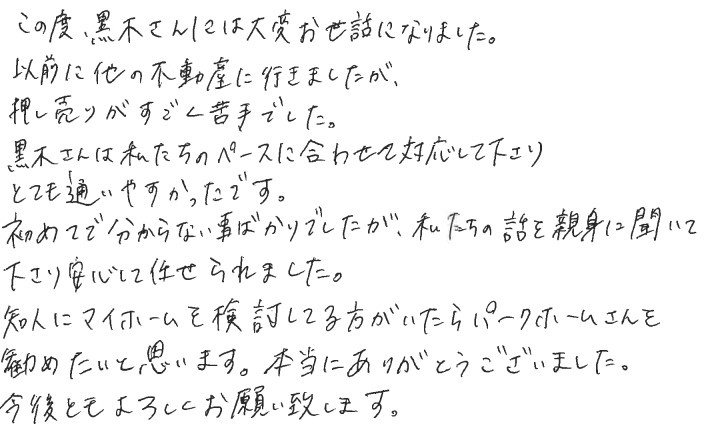 この度、黒木さんには大変お世話になりました。
以前に他の不動産に行きましたが、
押し売りがすごく苦手でした。
黒木さんは私たちのペースに合わせて対応して下さり
とても通いやすかったです。
初めてで分からない事ばかりでしたが、私たちの話を親身に聞いて
下さり安心して任せられました。
知人にマイホームを検討してる方がいたらパークホームさんを
勧めたいと思います。本当にありがとうございました。
今後ともよろしくお願い致します。